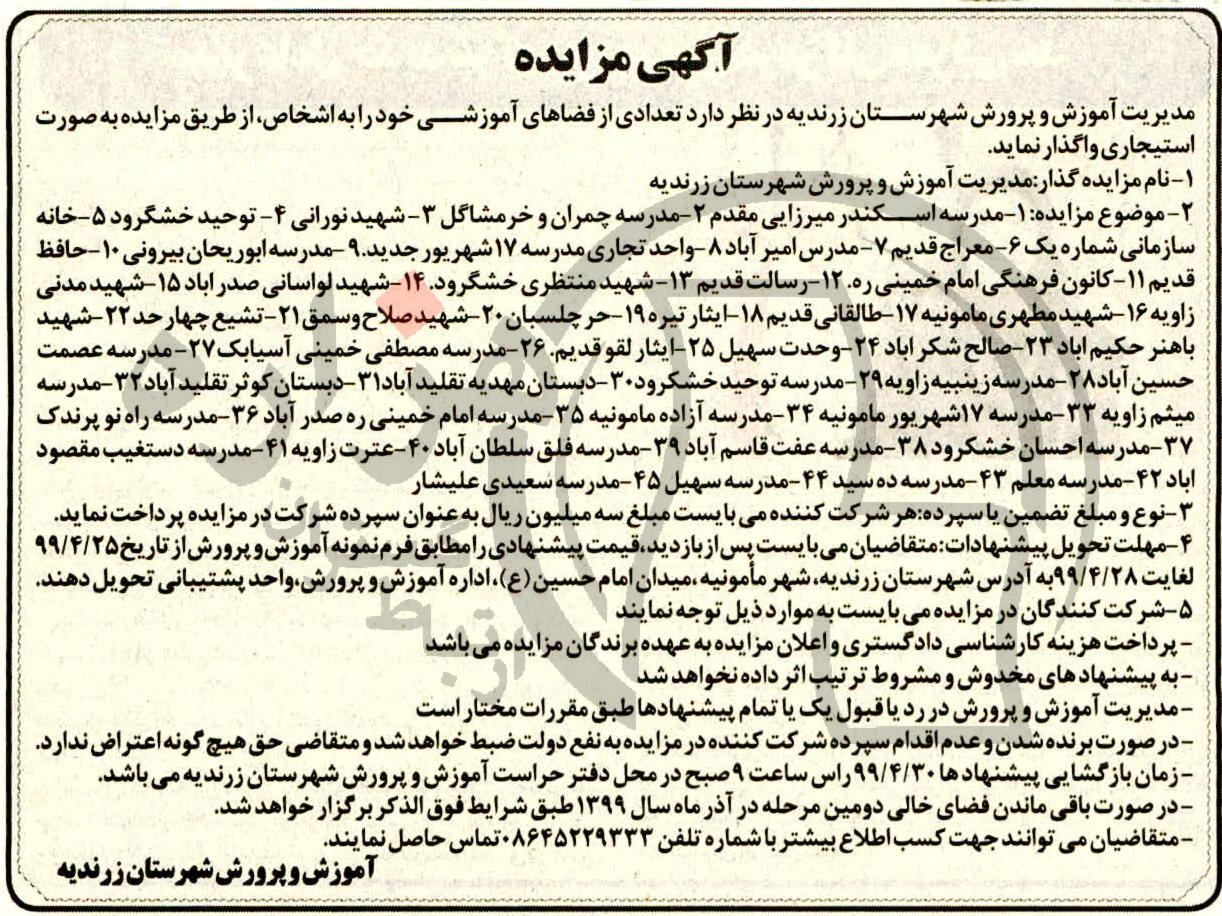 آگهی مزایده
مدیریت آموزش و پرورش شهرستان زرندیه در نظر دارد تعدادی از فضاهای آموزشی خود را به اشخاص، از طریق مزایده به صورت
استیجاری واگذار نماید.
۱-نام مزایده گذار:مدیریت آموزش و پرورش شهرستان زرندیه
۲-موضوع مزایده: ۱-مدرسه اسکندر میرزایی مقدم ۲-مدرسه چمران و خرمشاگل ۳-شهید نورانی ۴-توحید خشگرود ۵-خانه
سازمانی شماره یک ۶-معراج قدیم ۷-مدرس امیر آباد ۸-واحد تجاری مدرسه ۱۷ شهریور جدید. ۹-مدرسه ابوریحان بیرونی ۱۰-حافظ
قدیم ۱۱-کانون فرهنگی امام خمینی ره. ۱۲-رسالت قدیم ۱۳-شهید منتظری خشگرود. ۱۴-شهید لواسانی صدر اباد ۱۵-شهید مدنی
زاویه ۱۶-شهید مطهری مامونیه ۱۷-طالقانی قدیم ۱۸-ایثار تیره ۱۹-حر چلسبان ۲۰-شهید صلاح وسمق ۲۱-تشیع چهار حد ۲۲-شهید
باهنر حکیم اباد ۲۳-صالح شکر اباد ۲۴-وحدت سهیل ۲۵-ایثار لقو قدیم. ۲۶-مدرسه مصطفی خمینی آسیابک ۲۷-مدرسه عصمت
حسین آباد ۲۸-مدرسه زینبیه زاویه ۲۹-مدرسه توحید خشکرود ۳۰-دبستان مهدیه تقلید آباد ۳۱-دبستان کوثر تقلید آباد ۳۲-مدرسه
میثم زاویه ۳۳-مدرسه ۱۷ شهریور مامونیه ۳۴-مدرسه آزاده مامونیه ۳۵-مدرسه امام خمینی ره صدر آباد ۳۶-مدرسه راه نو پرندک
۳۷-مدرسه احسان خشکرود ۳۸-مدرسه عفت قاسم آباد ۳۹-مدرسه فلق سلطان آباد ۴۰-عترت زاویه ۴۱-مدرسه دستغیب مقصود
اباد ۴۲-مدرسه معلم ۴۳-مدرسه ده سید ۴۴-مدرسه سهیل ۴۵-مدرسه سعیدی علیشار
۳-نوع و مبلغ تضمین یا سپرده:هر شرکت کننده می بایست مبلغ سه میلیون ریال به عنوان سپرده شرکت در مزایده پرداخت نماید.
۴-مهلت تحویل پیشنهادات:متقاضیان می بایست پس از بازدید،قیمت پیشنهادی را مطابق فرم نمونه آموزش و پرورش از تاریخ ۹۹/۴/۲۵
لغایت ۹۹/۴/۲۸ به آدرس شهرستان زرندیه، شهر مأمونیه ،میدان امام حسین (ع)،اداره آموزش و پرورش،واحد پشتیبانی تحویل دهند.
۵-شرکت کنندگان در مزایده می بایست به موارد ذیل توجه نمایند
- پرداخت هزینه کارشناسی دادگستری و اعلان مزایده به عهده برندگان مزایده می باشد
- به پیشنهادهای مخدوش و مشروط ترتیب اثر داده نخواهد شد
-مدیریت آموزش و پرورش در رد یا قبول یک یا تمام پیشنهادها طبق مقررات مختار است
-در صورت برنده شدن و عدم اقدام سپرده شرکت کننده در مزایده به نفع دولت ضبط خواهد شد و متقاضی حق هیچ گونه اعتراض ندارد.
-زمان بازگشایی پیشنهادها ۹۹/۴/۳۰ راس ساعت ۹ صبح در محل دفتر حراست آموزش و پرورش شهرستان زرندیه می باشد.
-در صورت باقی ماندن فضای خالی دومین مرحله در آذر ماه سال ۱۳۹۹ طبق شرایط فوق الذکر برگزار خواهد شد.
-متقاضیان می توانند جهت کسب اطلاع بیشتر با شماره تلفن ۰۸۶۴۵۲۲۹۳۳۳ تماس حاصل نمایند.
آموزش و پرورش شهرستان زرندیه